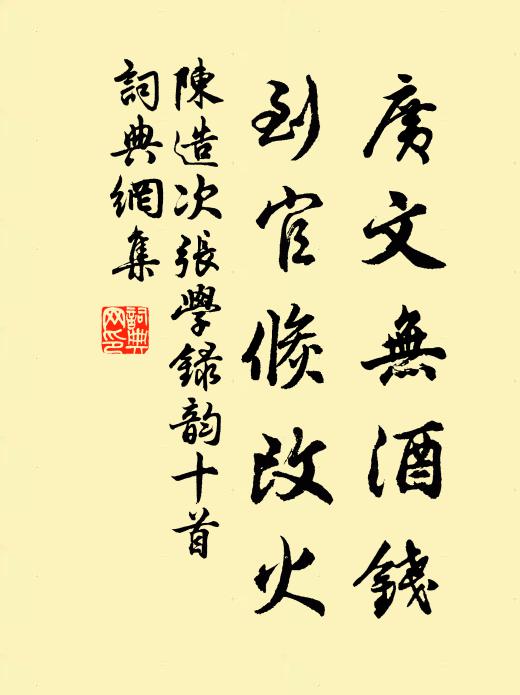 廣文無酒錢
到官倏改火
陳造次張學録韵十首
詞典網集
詞典网印